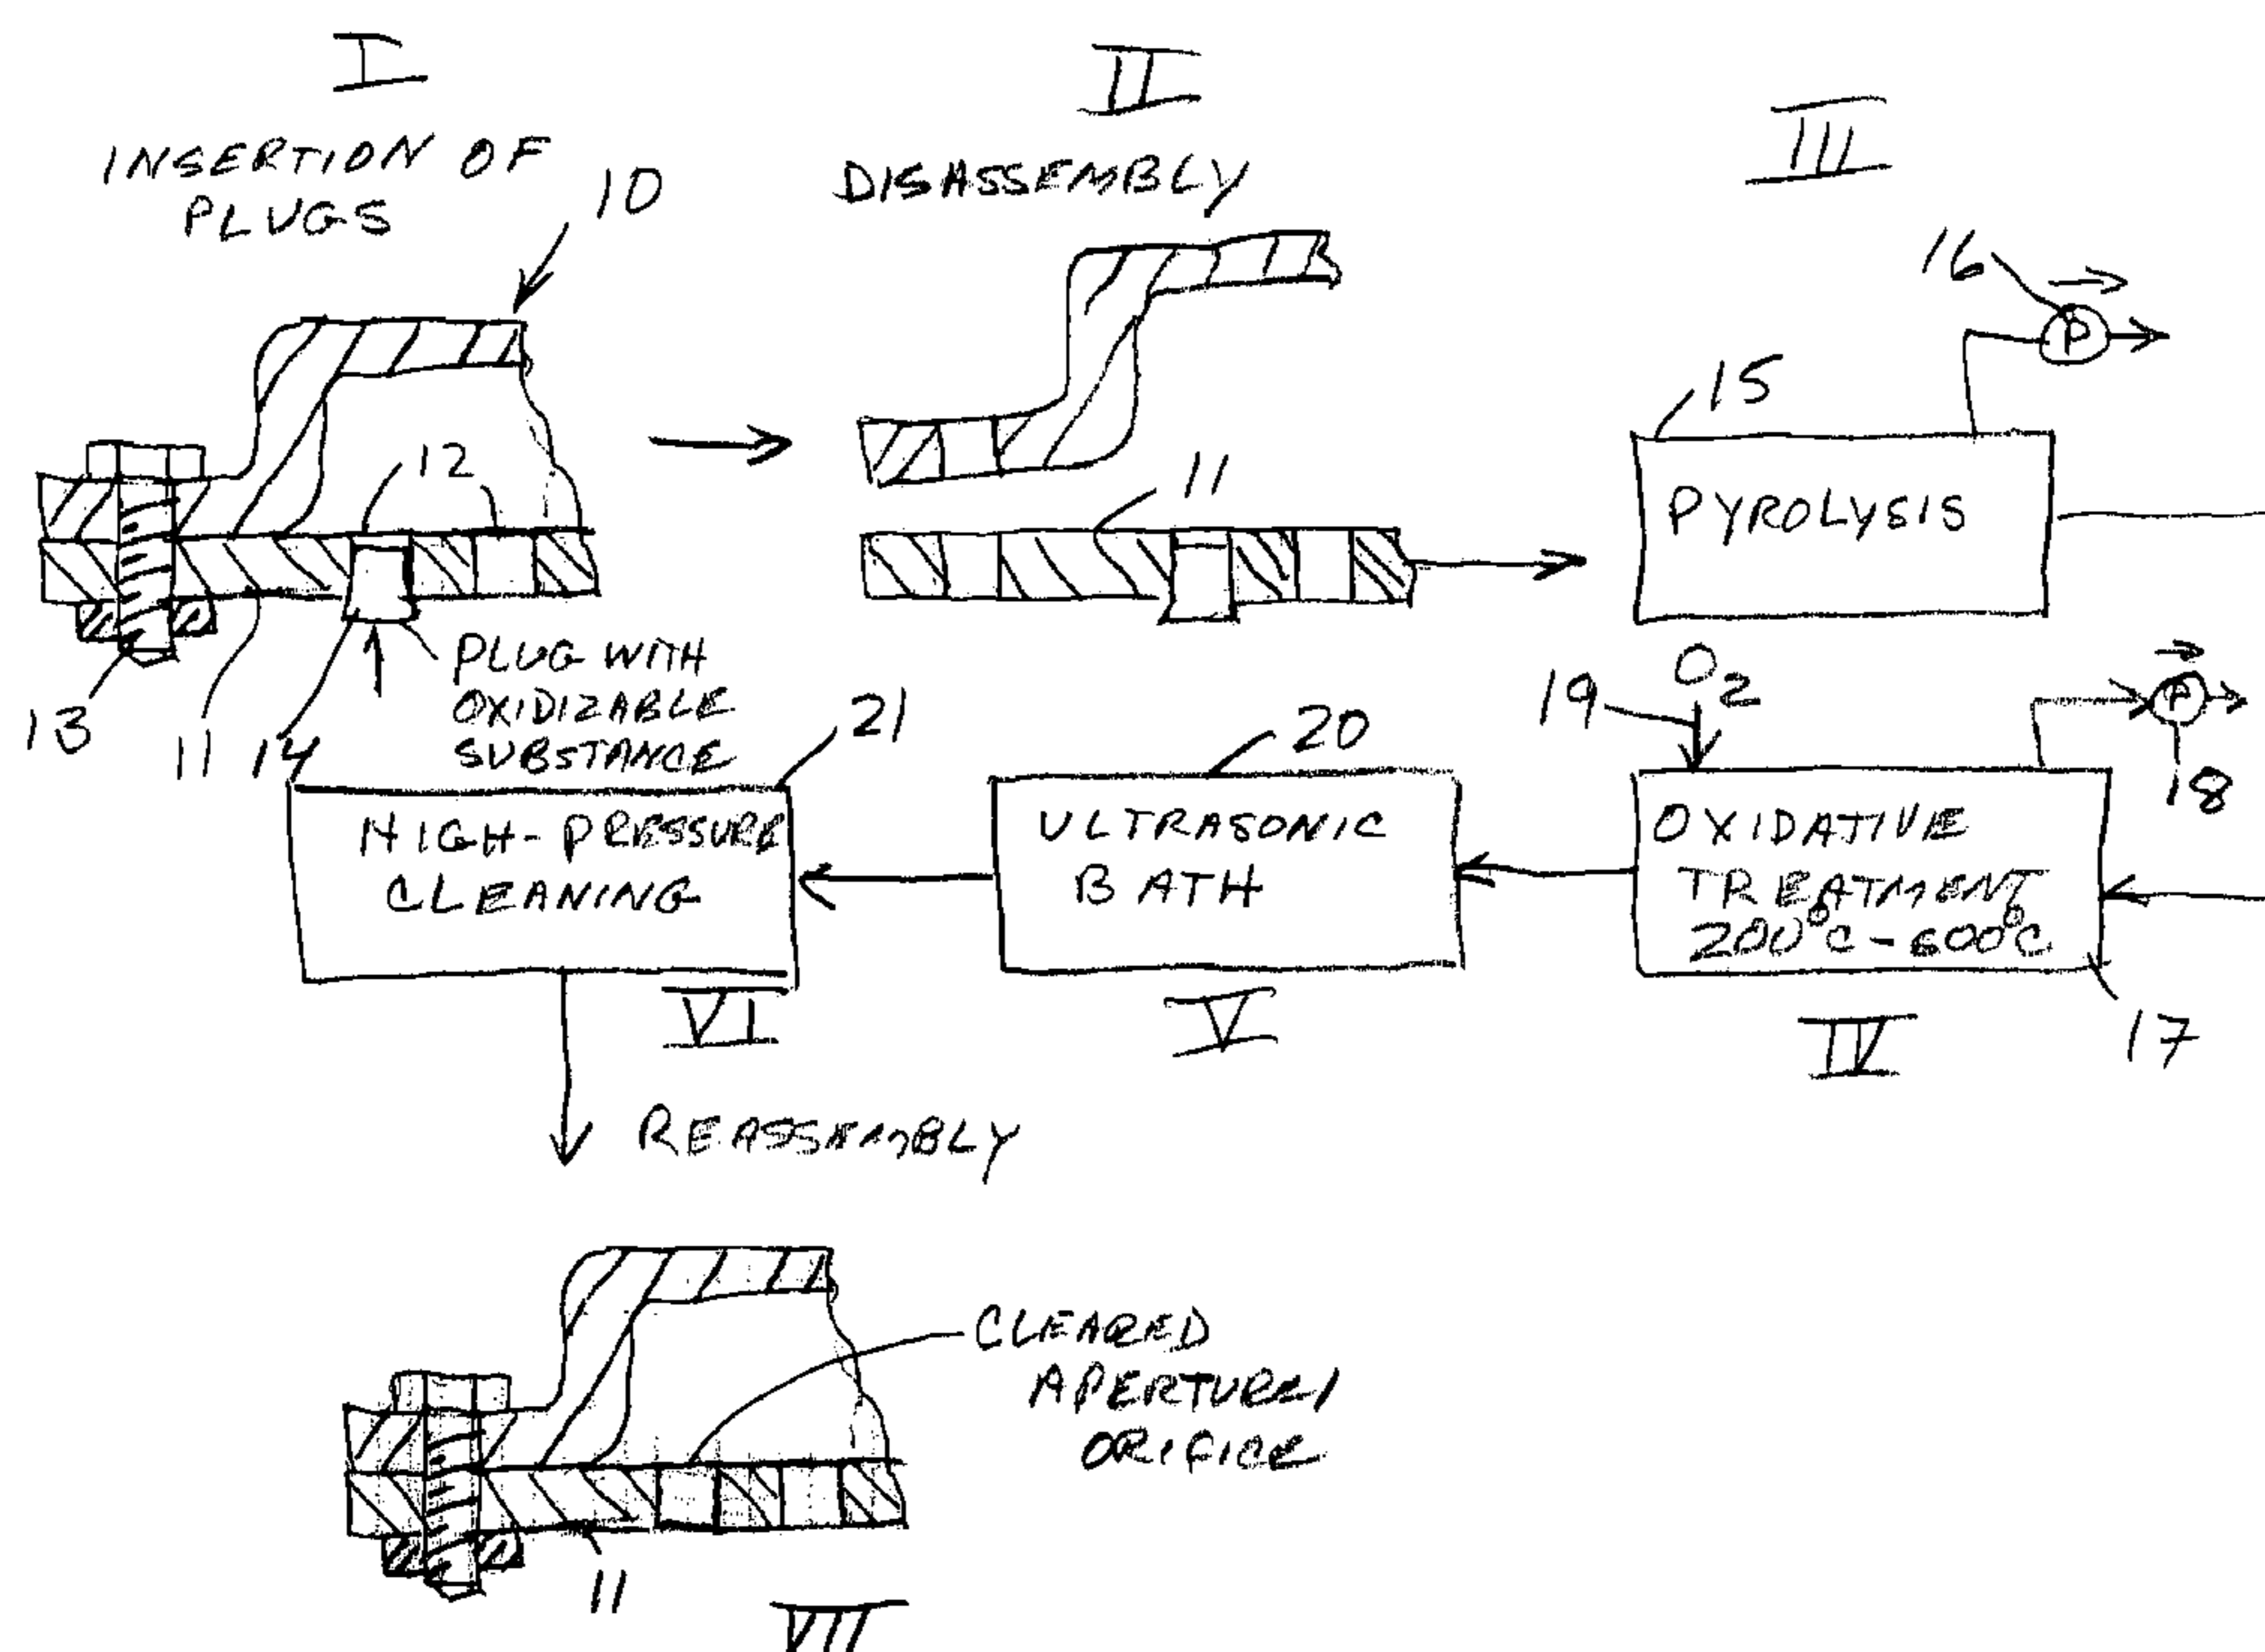 I
INSERTION OF
PLUGS
10
12
13
11
14
PLUG WITH
OXIDIZABLE
SUBSTANCE
II
DISASSEMBLY
11
III
16
P
15
PYROLYSIS
19
O2
P
18
OXIDATIVE
TREATMENT
200°C - 600°C
17
IV
20
ULTRASONIC
BATH
V
21
HIGH-PRESSURE
CLEANING
VI
REASSEMBLY
CLEARED
APERTURE/
ORIFICE
11
VII